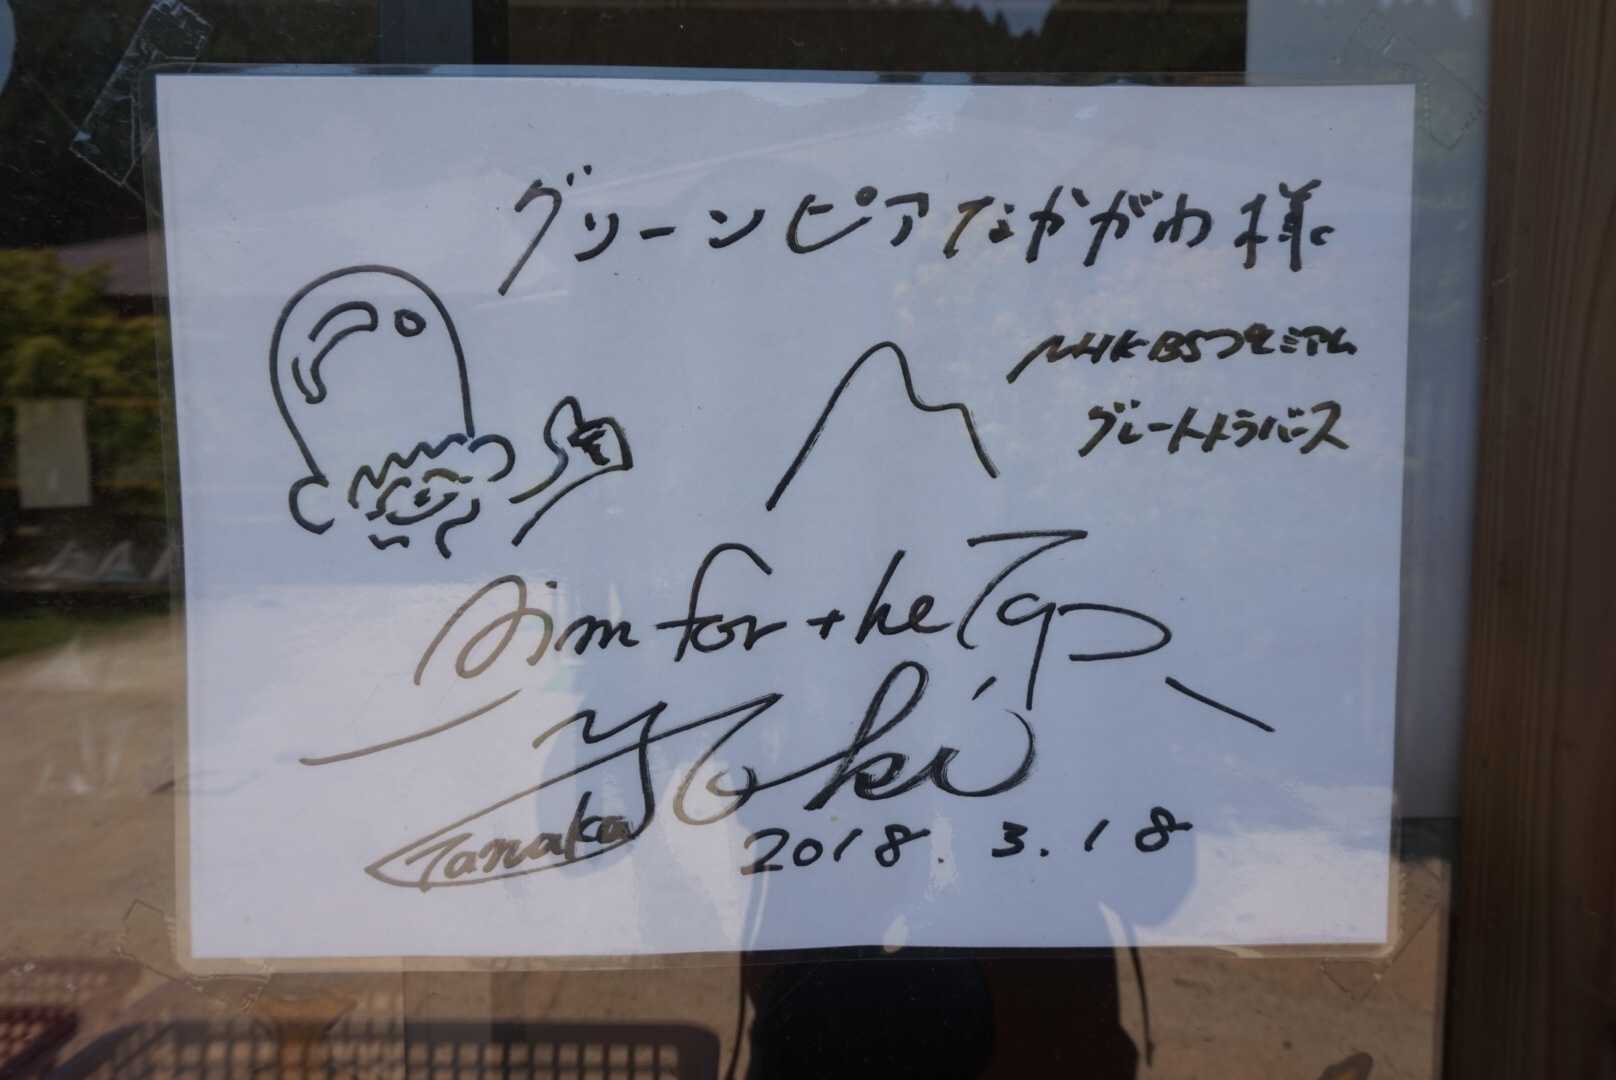 グリーンピアなかがわ様
NHK BSプレミアム
グレートトラバース
Aim for the Top
Yoki
Tanaka
2018.3.18